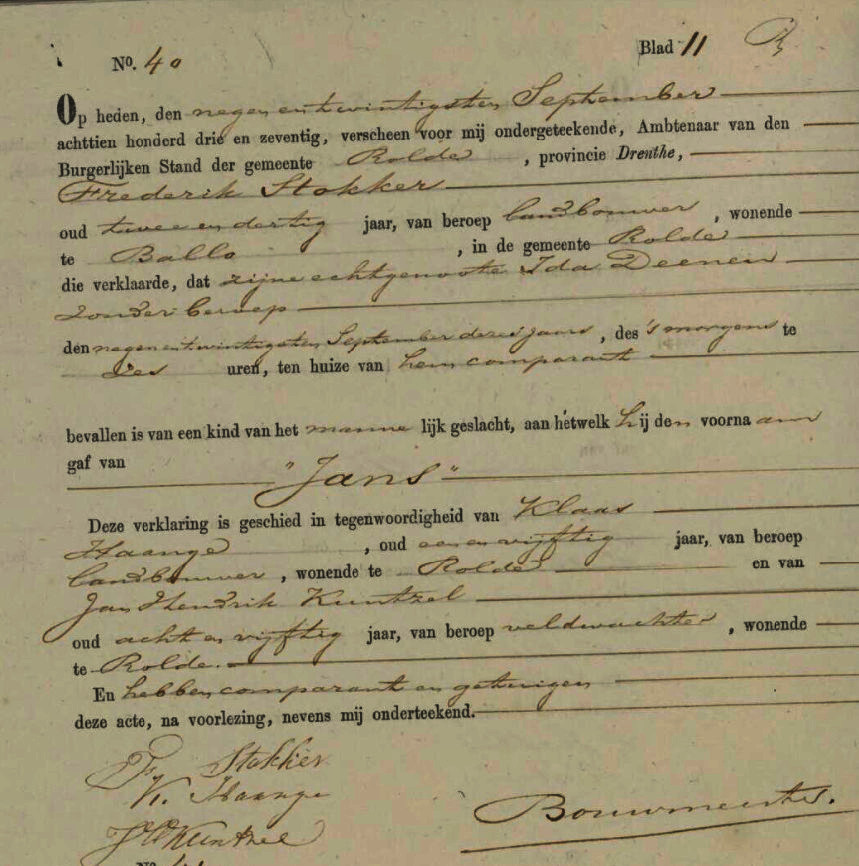 Nº. 40
Blad 11
Op heden, den negen en twintigsten September
achttien honderd drie en zeventig, verscheen voor mij ondergeteekende, Ambtenaar van den
Burgerlijken Stand der gemeente Rolde, provincie Drenthe,
Frederik Stokker
oud twee en dertig jaar, van beroep landbouwer, wonende
te Ballo, in de gemeente Rolde
die verklaarde, dat zijne echtgenoote Ida Deenen
zonder beroep
den negen en twintigsten September dezes jaars, des 's morgens te
zes uren, ten huize van hem comparant
bevallen is van een kind van het manne lijk geslacht, aan hetwelk hij den voorna am
gaf van
"Jans"
Deze verklaring is geschied in tegenwoordigheid van Klaas
Haange, oud een en vijftig jaar, van beroep
landbouwer, wonende te Rolde en van
Jan Hendrik Kuntzel
oud acht en vijftig jaar, van beroep veldwachter, wonende
te Rolde.
En hebben comparant en getuigen
deze acte, na voorlezing, nevens mij onderteekend.
F Stokker
K. Haange
JHKuntzel
Bouwmeester.